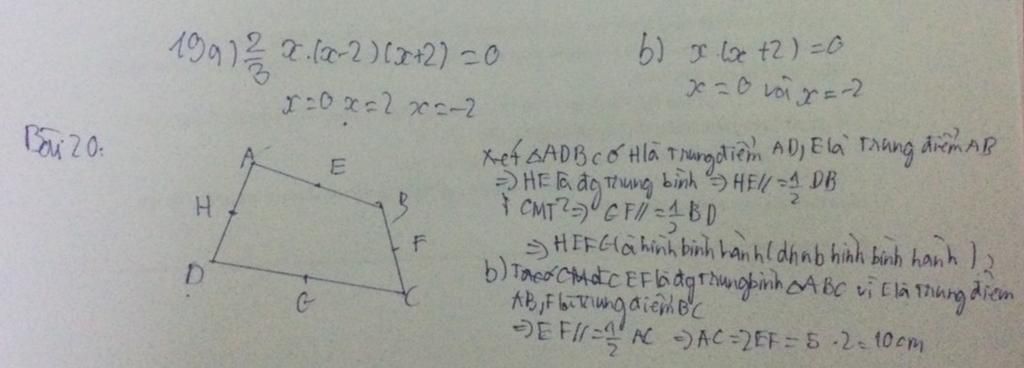 19a) 2/3 x.(x-2)(x+2)=0
x=0 x=2 x=-2
b) x.(x+2)=0
x=0 với x=-2
Bài 20:
A
E
B
H
F
D
G
C
Xét △ADB có H là trung điểm AD, E là trung điểm AB
=> HE là đg trung bình => HE//=1/2 DB
CMT2 => GF//=1/2 BD
=> HEFG là hình bình hành (dhnb hình bình hành)
b) Ta có EF là đg trung bình △ABC vì E là trung điểm
AB, F là trung điểm BC
=> EF//=1/2 AC => AC=2EF=5.2=10cm